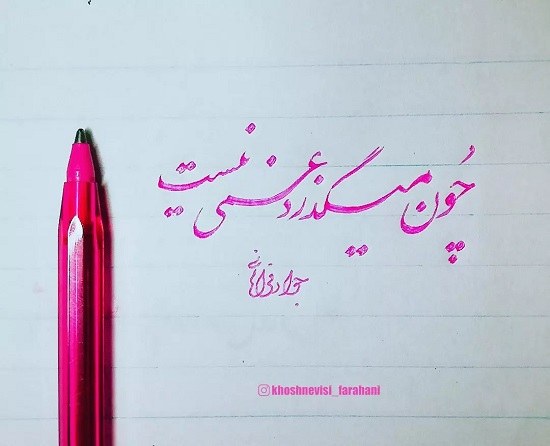 چُون میگذرد غمی نیست
جواد فراهانی
khoshnevisi_farahani